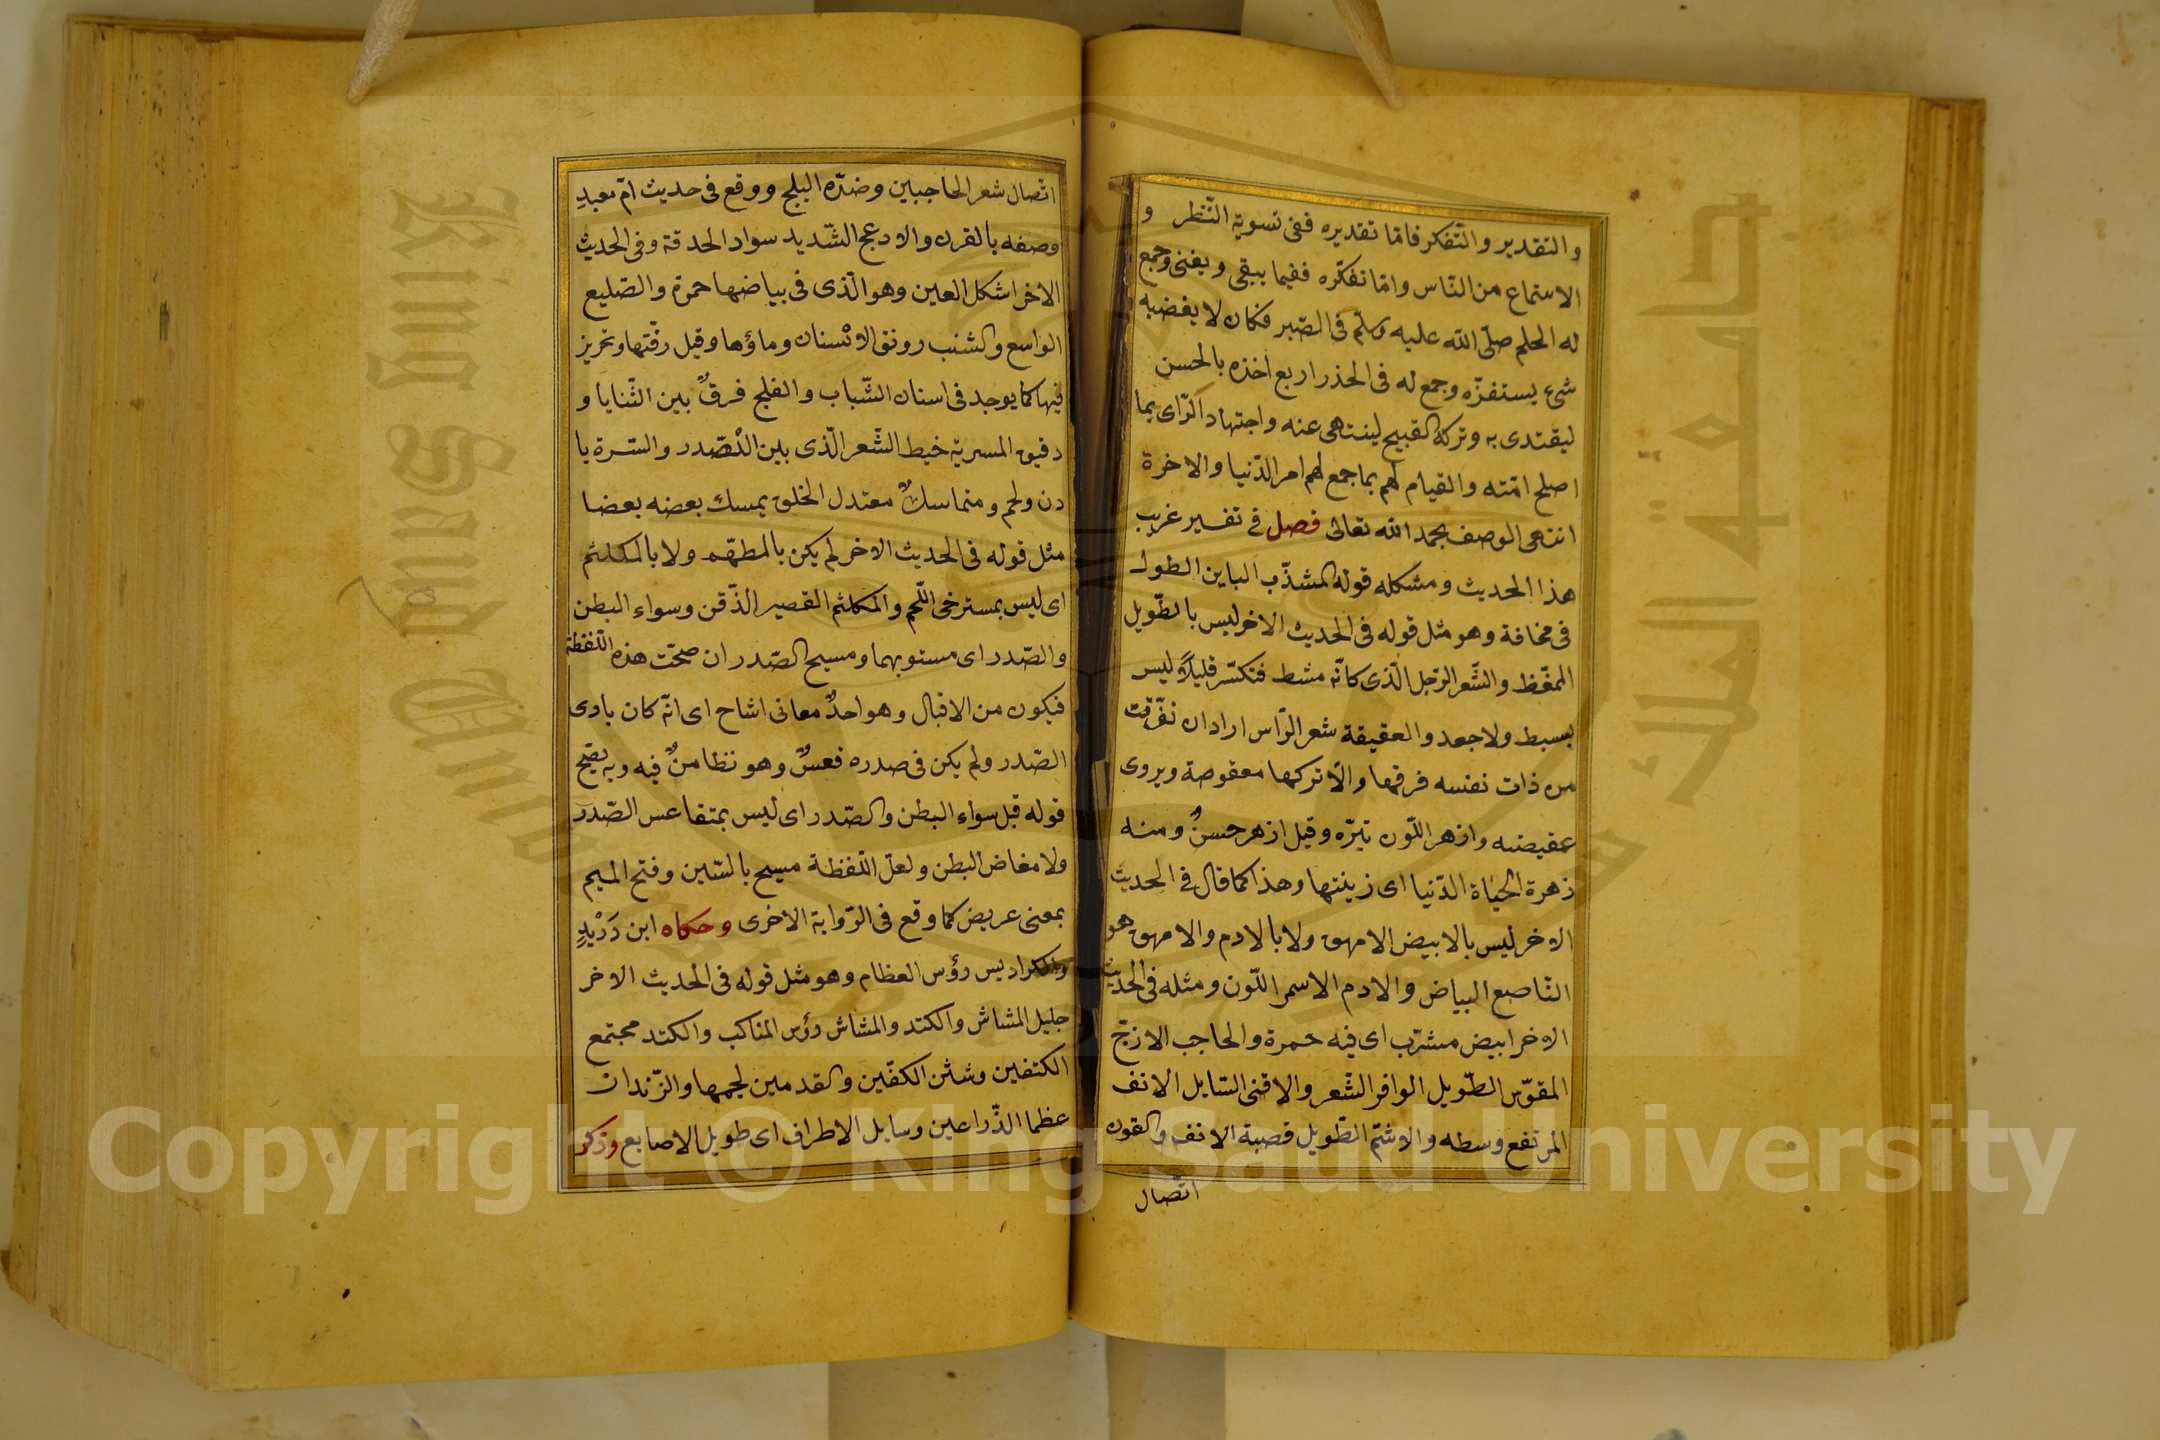 والتقدير والتّفكر فامّا تقديره ففى تسوية النّظر و
الاستماع من النّاس وامّا تفكّره ففيما يبقى ويفنى وجمع
له الحلم صلّى الله عليه وسلّم فى الصّبر فكان لا يغضبه
شىء يستفزّه وجمع له فى الحذر اربع اخذه بالحسن
ليقتدى به وتركه القبيح لينتهى عنه واجتهاد الرّاى بما
اصلح امّته والقيام لهم بما جمع لهم امر الدّنيا والاخرة
انتهى الوصف بحمد الله تعالى فصل فى تفسير غريب
هذا الحديث ومشكله قوله المشذّب الباين الطول
فى مخافة وهو مثل قوله فى الحديث الاخر ليس بالطّويل
الممغّظ والشّعر الرّجل الّذى كانّه مشط فتكسّر قليلاً ليس
بسبط ولا جعد والعقيقة شعر الرّاس اراد ان تفرّقت
من ذات نفسه فرقها والّا تركها معقوصة ويروى
عقيصته وازهر اللّون نيّره وقيل ازهر حسنٌ ومنه
زهرة الحياة الدّنيا اى زينتها وهذا كما قال فى الحديث
الاخر ليس بالابيض الامهق ولا بالادم والامهق هو
النّاصع البياض والادم الاسمر اللّون ومثله فى الحديث
الاخر ابيض مشرّب اى فيه حمرة والحاجب الازجّ
المقوّس الطّويل الوافر الشّعر والاقنى السّايل الانف
المرتفع وسطه والاشمّ الطّويل قصبة الانف والقرن
اتّصال
اتّصال شعر الحاجبين وضدّه البلج ووقع فى حديث امّ معبدٍ
وصفه بالقرن والادعج الشّديد سواد الحدقة وفى الحديث
الاخر اشكل العين وهو الّذى فى بياضها حمرة والضّليع
الواسع والشنب رونق الاسنان وماؤها وقيل رقّتها وتحزيز
فيها كما يوجد فى اسنان الشّباب والفلج فرقٌ بين الثّنايا و
دقيق المسربة خيط الشّعر الّذى بين الصّدر والسّرة با
دن ولحم ومتماسكٌ معتدل الخلق يمسك بعضه بعضا
مثل قوله فى الحديث الاخر لم يكن بالمطهّم ولا بالمكلثم
اى ليس بمسترخى اللّحم والمكلثم القصير الذّقن وسواء البطن
والصّدر اى مستويهما ومسيح الصّدر ان صحّت هذه اللّفظة
فيكون من الاقبال وهو احدٌ معانى اشاح اى انّه كان بادى
الصّدر ولم يكن فى صدره قعسٌ وهو تظامنٌ فيه وبه يتّضح
قوله قبل سواء البطن والصّدر اى ليس بمتقاعس الصّدر
ولا مفاض البطن ولعلّ اللّفظة مسيح بالسّين وفتح الميم
بمعنى عريض كما وقع فى الرّواية الاخرى وحكاه ابن دريدٍ
والكراديس رؤس العظام وهو مثل قوله فى الحديث الاخر
جليل المشاش والكتد والمشاش رؤس المناكب والكتد مجتمع
الكتفين وشثن الكفّين والقدمين لحيمها والزّندان
عظما الذّراعين وسايل الاطراف اى طويل الاصابع وذكر
Copyright © King Saud University
King Saud University
جامعة الملك سعود